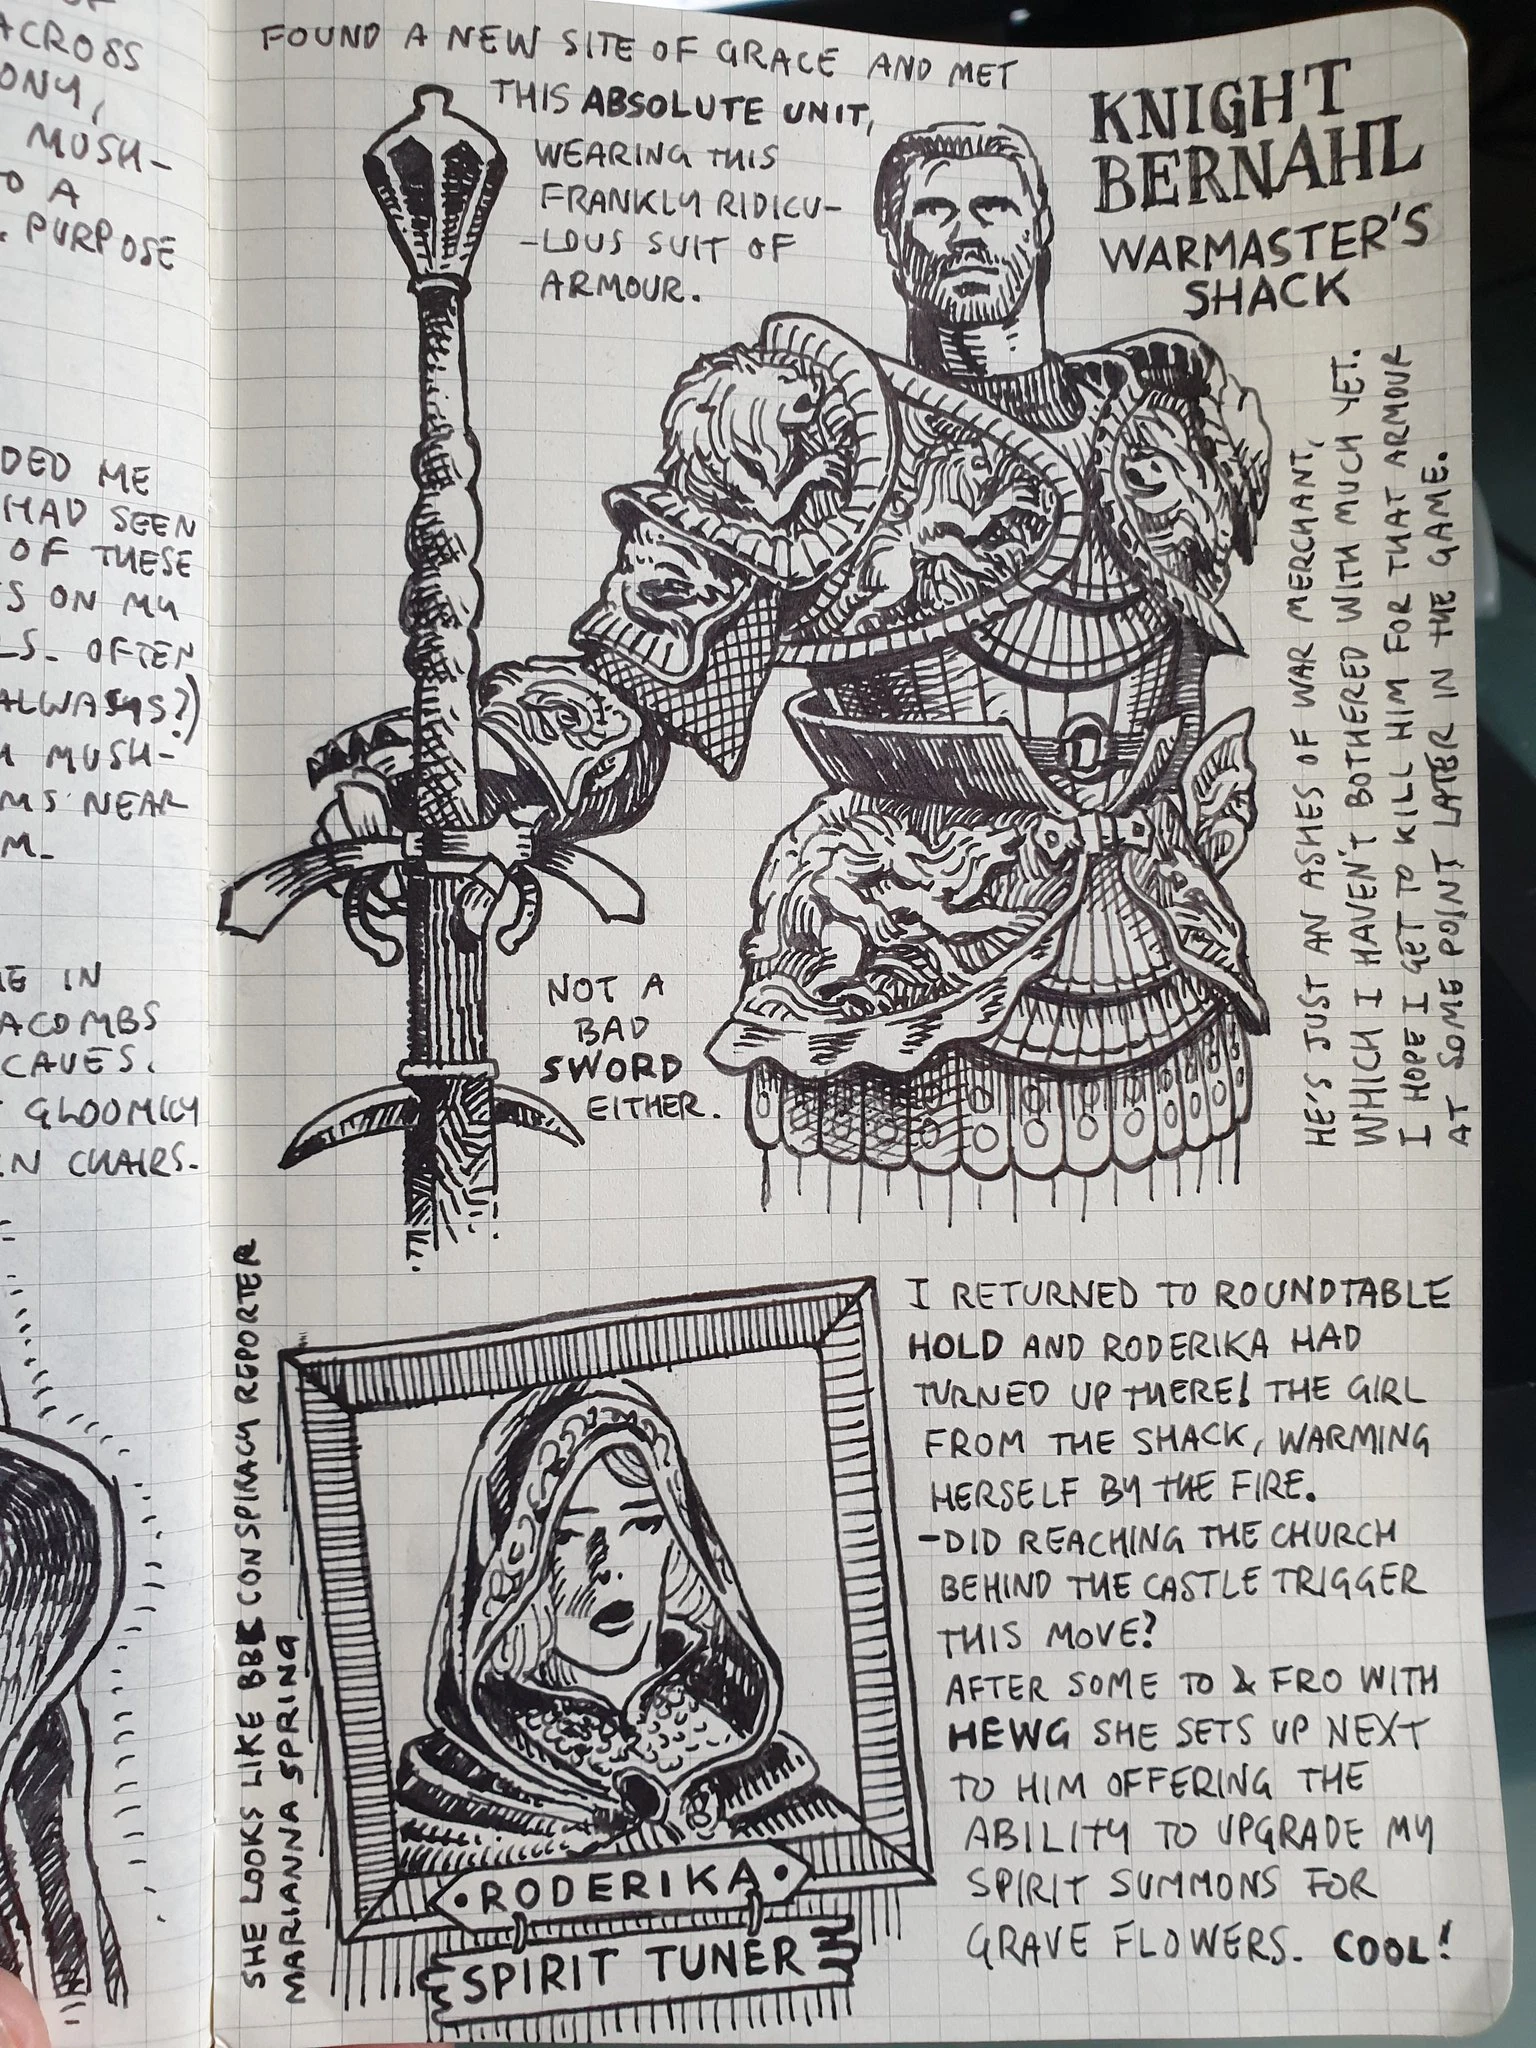 ACROSS
ONY,
MUSH-
O A
PURPOSE
DED ME
HAD SEEN
OF THESE
S ON MY
LS. OFTEN
ALWAYS?)
MUSH-
MS NEAR
M.
E IN
ACOMBS
CAVES.
GLOOMILY
EN CHAIRS.
FOUND A NEW SITE OF GRACE AND MET
THIS ABSOLUTE UNIT,
WEARING THIS
FRANKLY RIDICU-
-LOUS SUIT OF
ARMOUR.
KNIGHT
BERNAHL
WARMASTER'S
SHACK
HE'S JUST AN ASHES OF WAR MERCHANT,
WHICH I HAVEN'T BOTHERED WITH MUCH YET.
I HOPE I GET TO KILL HIM FOR THAT ARMOUR
AT SOME POINT LATER IN THE GAME.
NOT A
BAD
SWORD
EITHER.
SHE LOOKS LIKE BBC CONSPIRACY REPORTER
MARIANNA SPRING
RODERIKA
SPIRIT TUNER
I RETURNED TO ROUNDTABLE
HOLD AND RODERIKA HAD
TURNED UP THERE! THE GIRL
FROM THE SHACK, WARMING
HERSELF BY THE FIRE.
-DID REACHING THE CHURCH
BEHIND THE CASTLE TRIGGER
THIS MOVE?
AFTER SOME TO & FRO WITH
HEWG SHE SETS UP NEXT
TO HIM OFFERING THE
ABILITY TO UPGRADE MY
SPIRIT SUMMONS FOR
GRAVE FLOWERS. COOL!